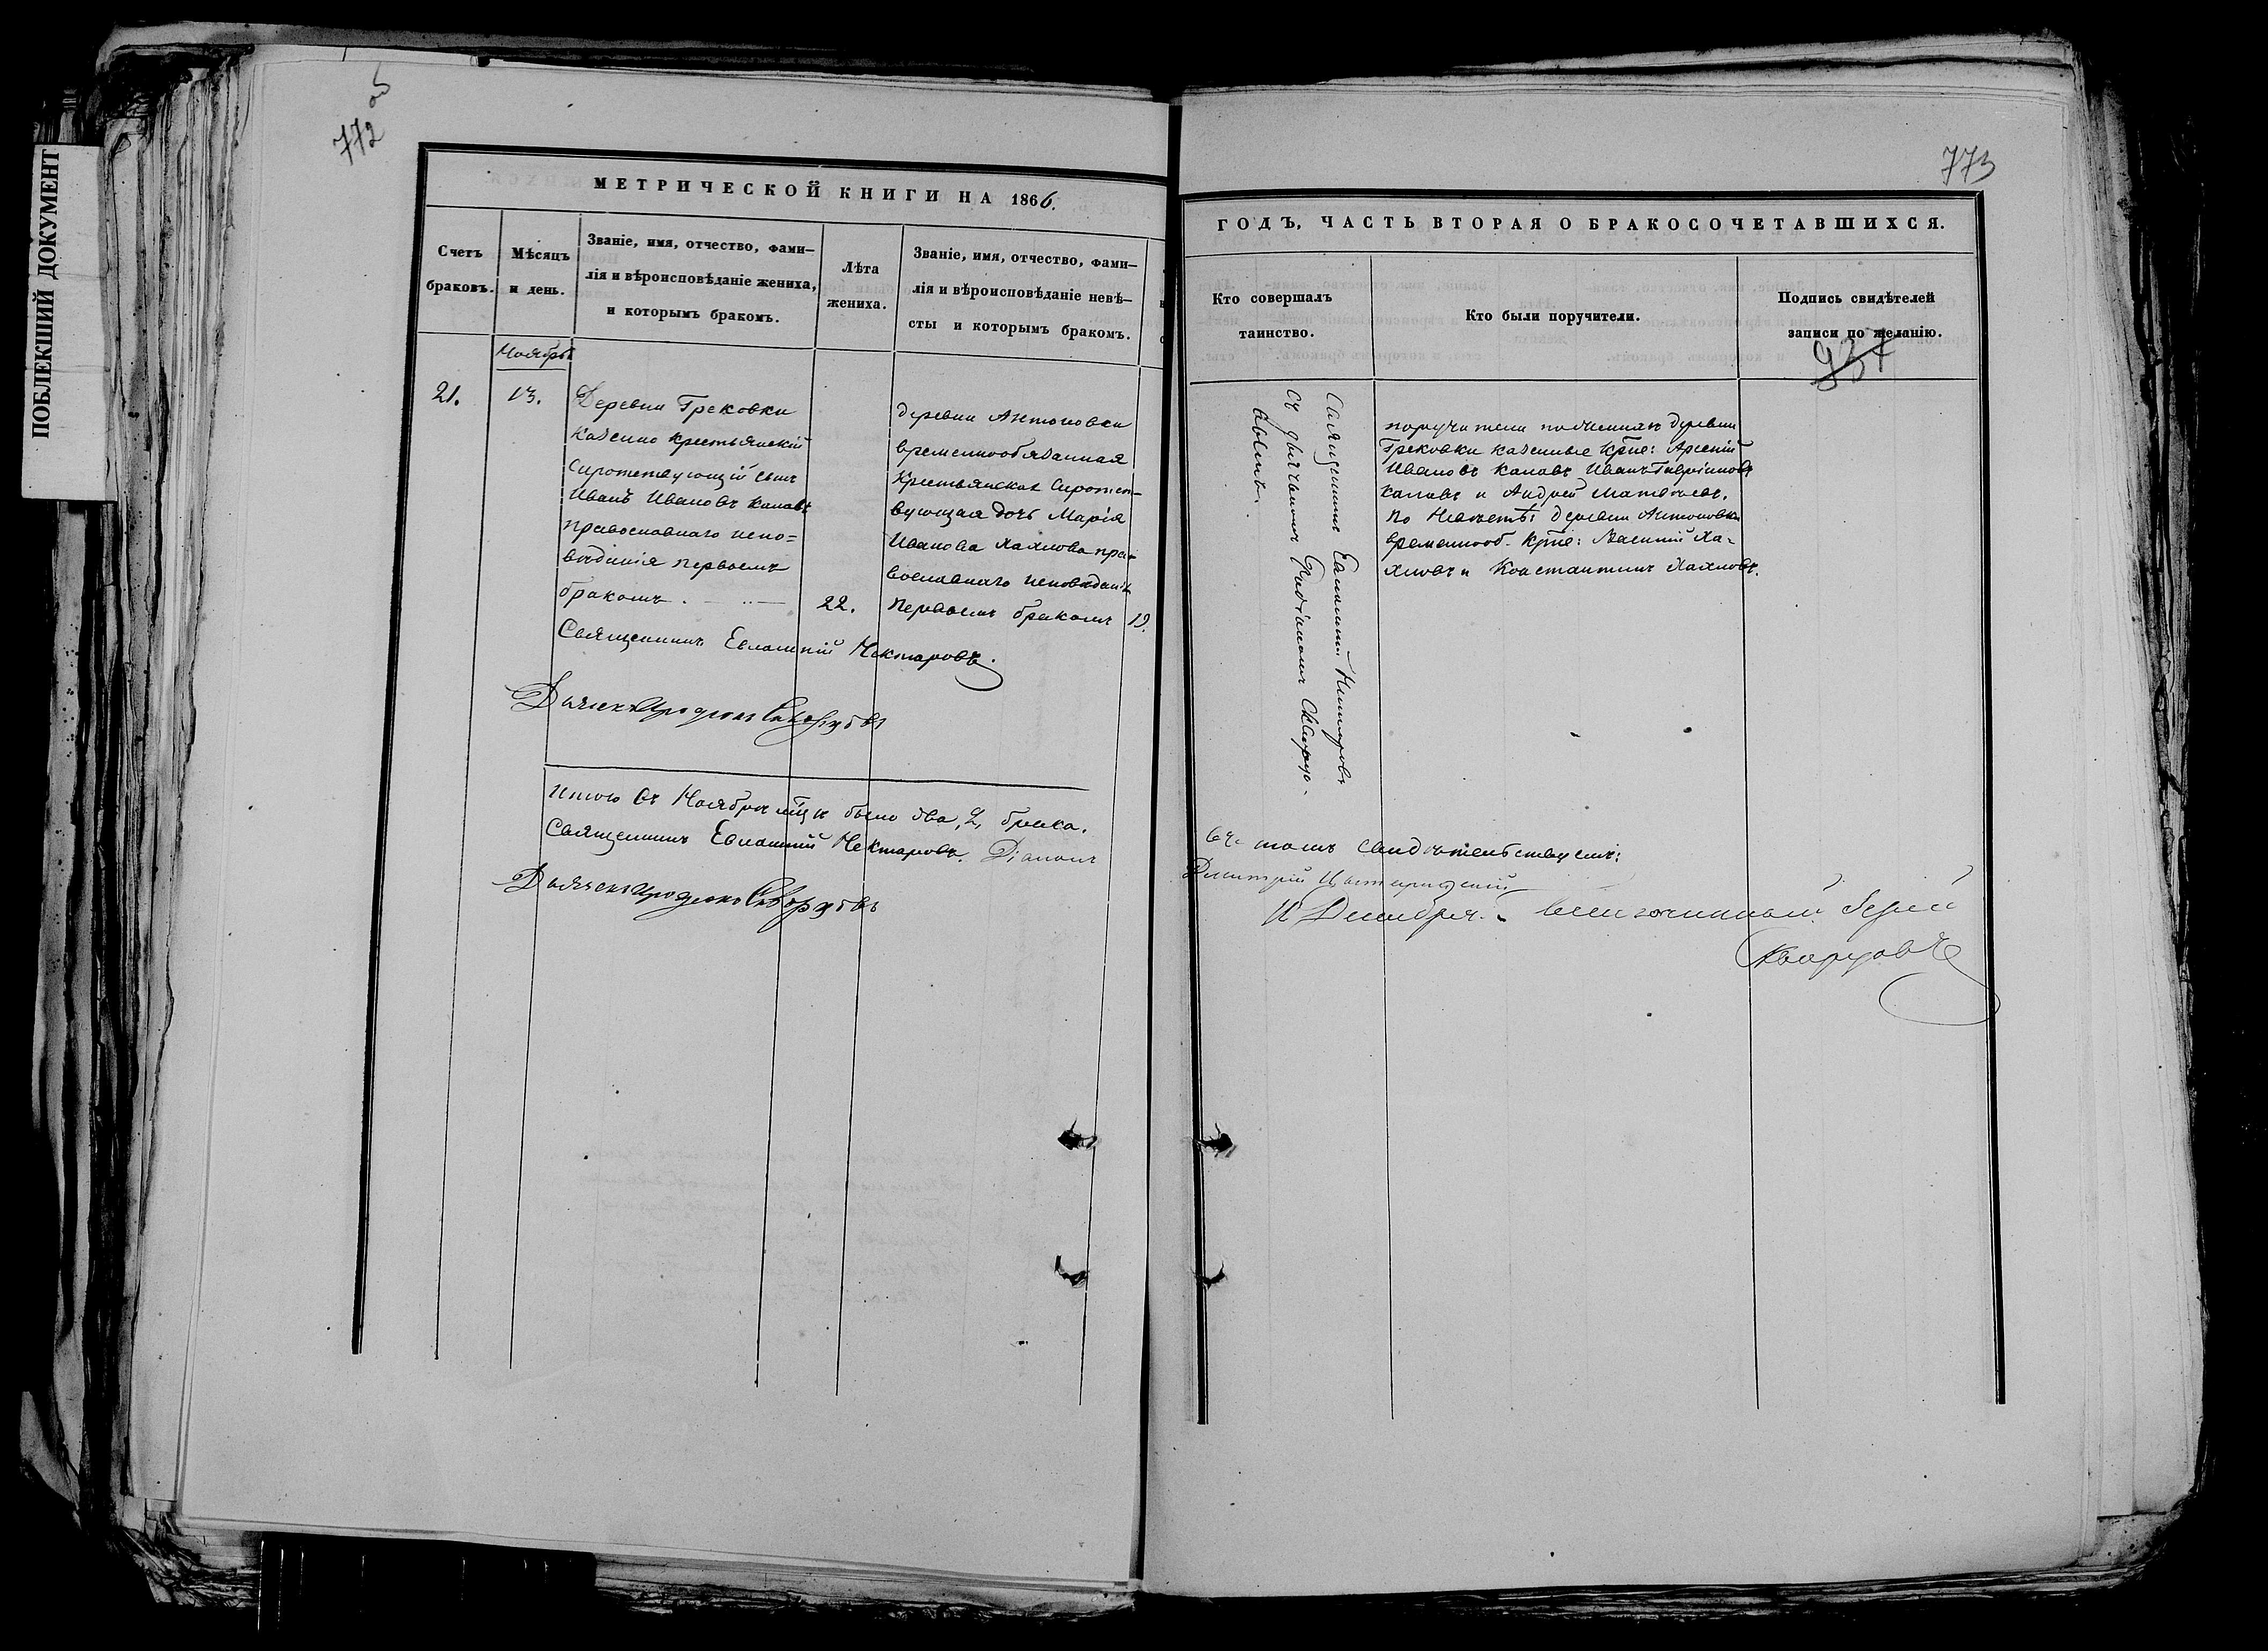 ПОБЛЕКШИЙ ДОКУМЕНТ
772
об
МЕТРИЧЕСКОЙ КНИГИ НА 1866.
Счетъ
браковъ.
Мѣсяцъ
и день.
Званіе, имя, отчество, фами–
лія и вѣроисповѣданіе жениха,
и которымъ бракомъ.
Лѣта
жениха.
Званіе, имя, отчество, фами–
лія и вѣроисповѣданіе невѣ–
сты и которымъ бракомъ.
Ноябрь
21.
13.
Деревни Грековки
казенно крестьянскій
сиротствующій сынъ
Иванъ Ивановъ
православнаго испо=
вѣданія первымъ
бракомъ.
22.
деревни Антоновки
временнообязанная
крестьянская сиротст–
вующая дочь Марія
Иванова Хахлова пра–
вославнаго исповѣданія
первымъ бракомъ
19.
Священникъ Евлампій Нектаровъ.
Дьячекъ Иродіонъ Скворцовъ
Итого въ Ноябрѣ м͠цѣ было два, 2, брака.
Священникъ Евлампій Нектаровъ. Діаконъ
Дьячекъ Иродіонъ Скворцовъ
773
ГОДЪ, ЧАСТЬ ВТОРАЯ О БРАКОСОЧЕТАВШИХСЯ.
Кто совершалъ
таинство.
Кто были поручители.
Подпись свидѣтелей
записи по желанію.
Священникъ Евлампій Нектаровъ
съ дьячкомъ Иродіономъ Скворцо–
вымъ.
поручители по женихѣ деревни
Грековки казенные крт͠не: Арсеній
Ивановъ Иванъ
и Андрей Матвѣевъ.
по невѣстѣ: деревни Антоновки
временнооб. крт͠не: Василій Ха–
хловъ и Константинъ Хахловъ.
въ томъ свидѣтельствуемъ:
Дмитрій
Декабря. Благочинный Іерей
Скворцовъ